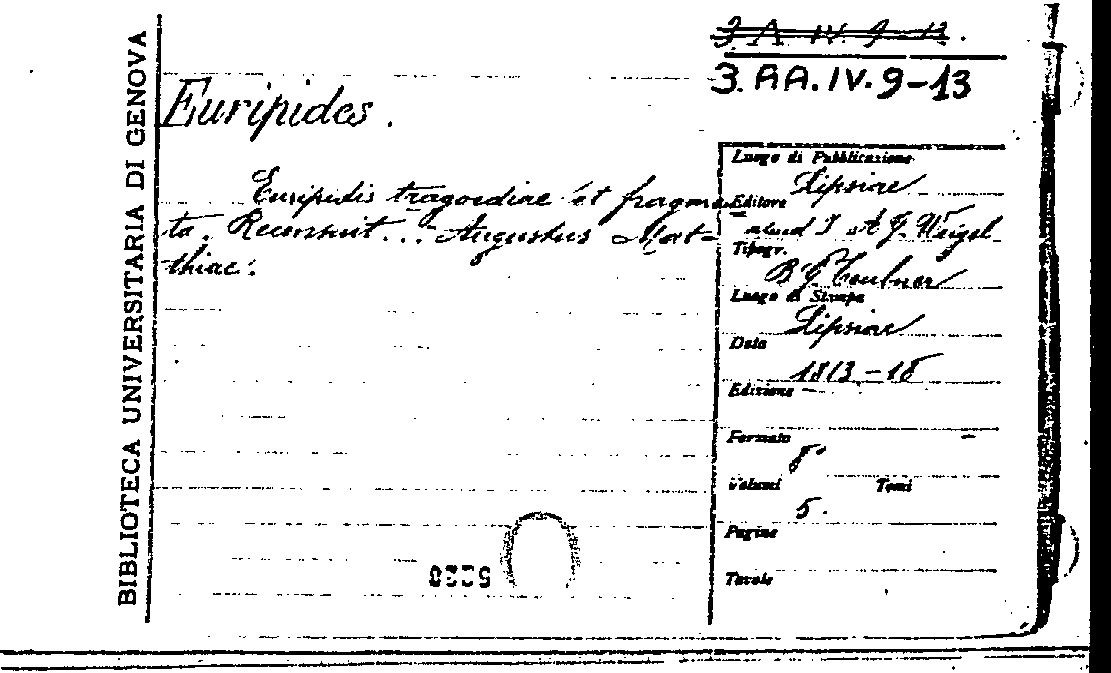 3 A IV. 9-13.
3. AA. IV. 9-13
BIBLIOTECA UNIVERSITARIA DI GENOVA
Euripides.
Euripidis tragoediae et fragmen
ta. Recensuit... Augustus Mat-
thiae.
Luogo di Pubblicazione
Lipsiae
Editore
apud I. A. G. Weigel
Tipogr.
B. G. Teubner
Luogo di Stampa
Lipsiae
Data
1813-18
Edizione -
Formato
8°
Volumi Tomi
5.
Pagine
Tavole